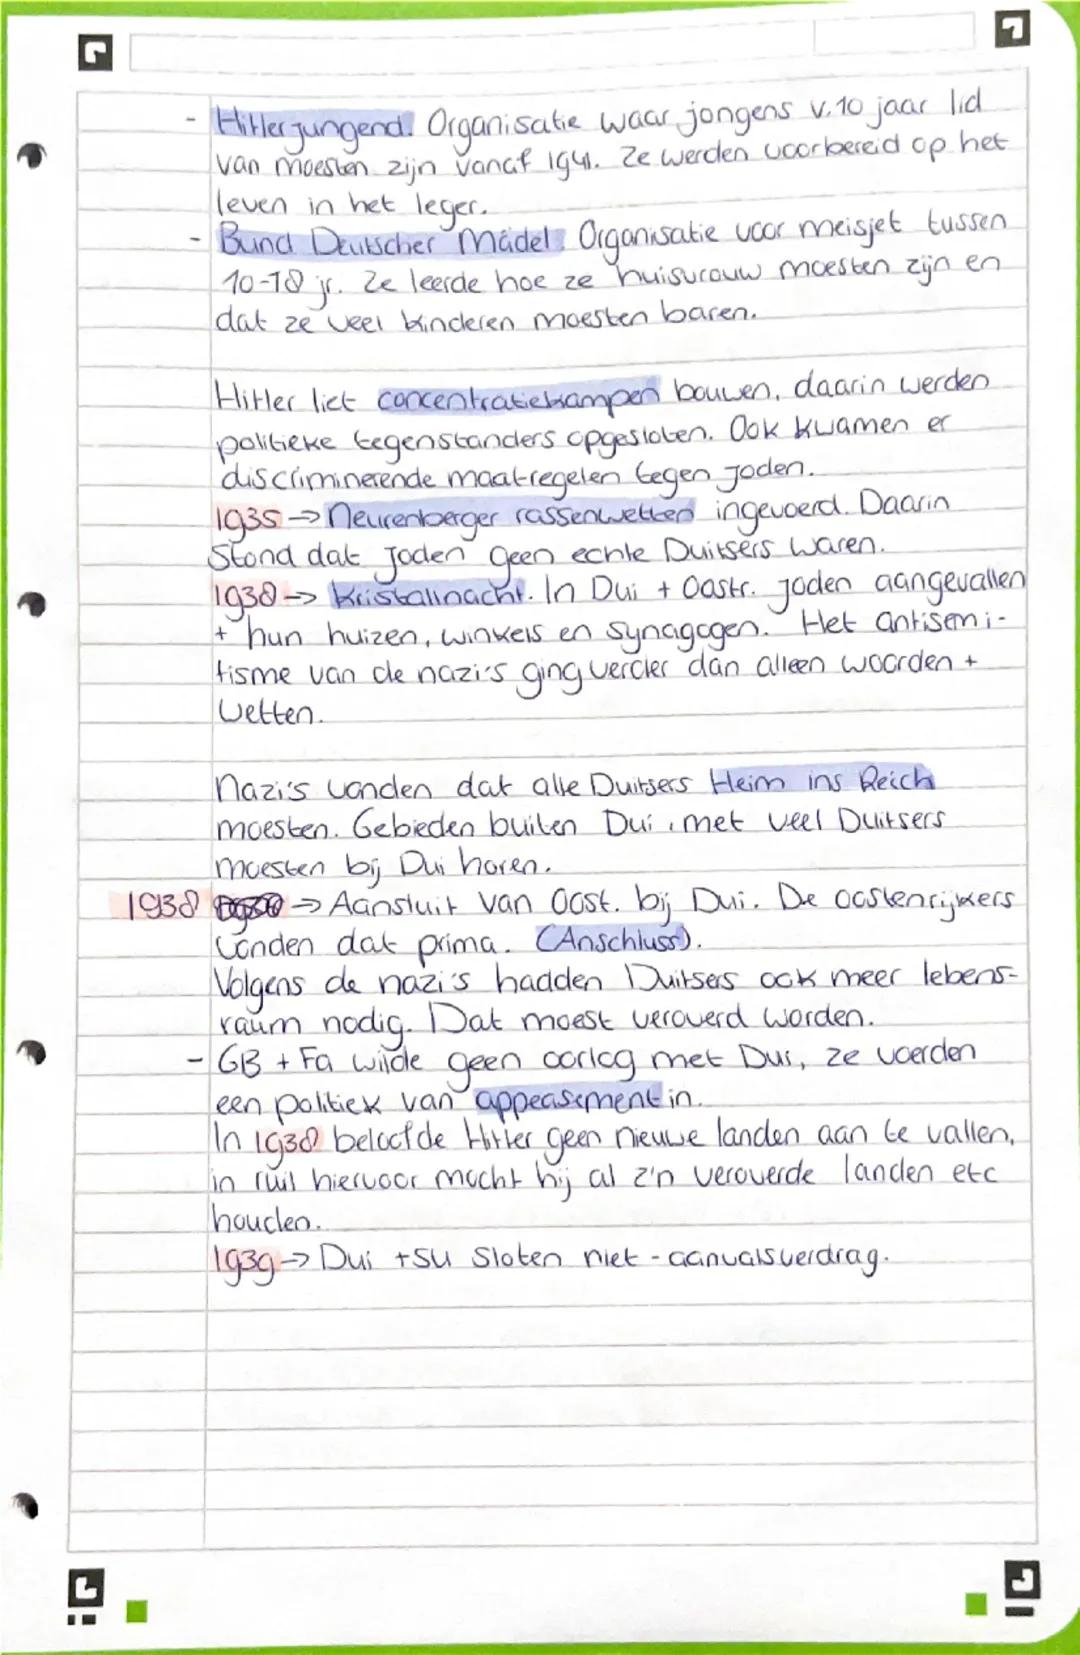 - Hitlerjungend: Organisatie waar jongens v. 10 jaar lid
van moesten zijn vanaf 1941. Ze werden voorbereid op het
leven in het leger.
- Bund Deutscher Mädel: Organisatie voor meisjet tussen
10-18 jr. Ze leerde hoe ze huisvrouw moesten zijn en
dat ze veel kinderen moesten baren.
Hitler liet concentratiekampen bouwen, daarin werden
politieke tegenstanders opgesloten. Ook kwamen er
discriminerende maatregelen tegen joden.
1935 → Neurenberger rassenwetten ingevoerd. Daarin
Stond dat joden geen echte Duitsers waren.
1938 → Kristallnacht. In Dui + Oostr. joden aangevallen
+ hun huizen, winkels en synagogen. Het antisemi-
tisme van de nazi's ging verder dan alleen woorden +
wetten.
Nazi's vonden dat alle Duitsers Heim ins Reich
moesten. Gebieden buiten Dui, met veel Duitsers
moesten bij Dui horen.
1938 → Aansluit van Oost. bij Dui. De oostenrijkers
vonden dat prima. (Anschluss).
Volgens de nazi's hadden Duitsers ook meer lebens-
raum nodig. Dat moest veroverd worden.
- GB + Fa wilde geen oorlog met Dui, ze voerden
een politiek van appeasement in.
In 1938 beloofde Hitler geen nieuwe landen aan te vallen,
in ruil hiervoor mocht hij al z'n veroverde landen etc
houden.
1939 → Dui + SU sloten niet-aanvalsverdrag.